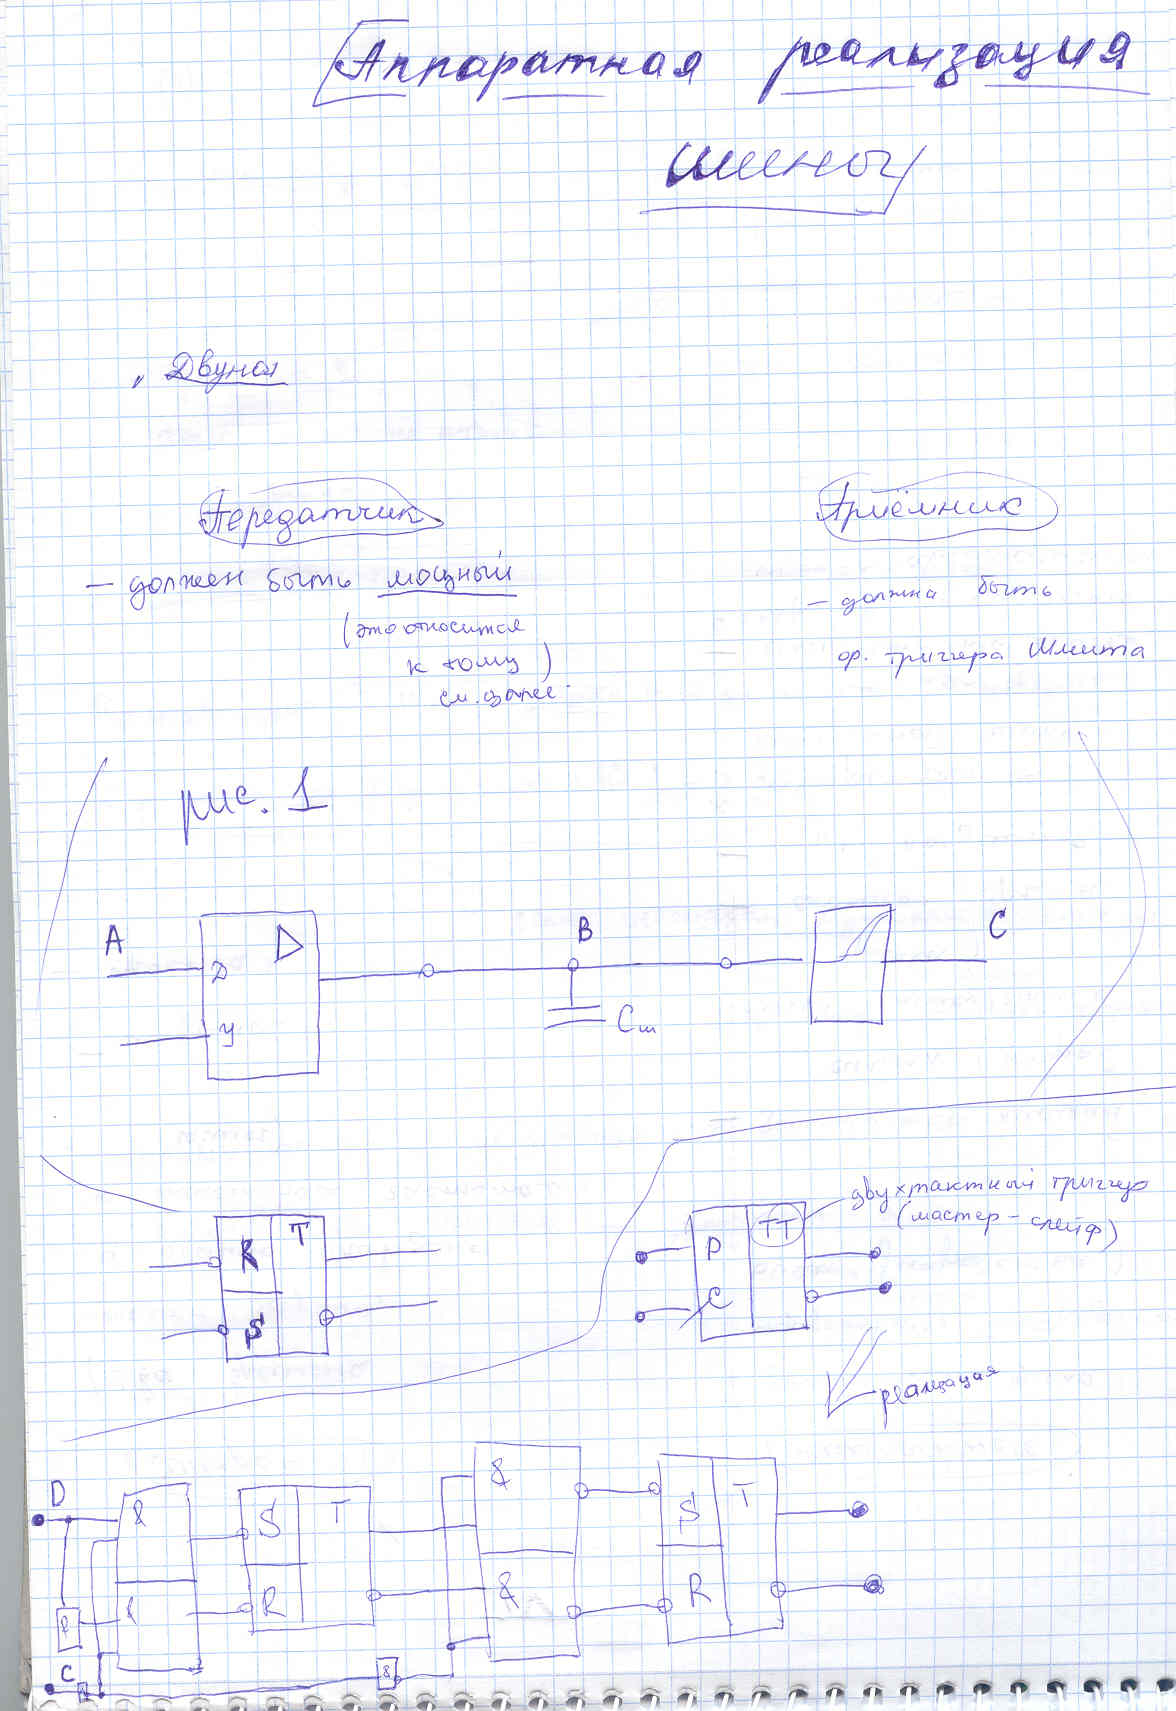 Аппаратная реализация
шины
Передатчик
Приёмник
— должен быть мощный
— должна быть
(это относится
к тому)
см. далее
ф. триггера Шмита
рис. 1
A
D
У
B
Cш
C
R
T
S
D
C
TT
двухтактный триггер
(мастер-слейф)
реализация
D
&
&
S
T
R
&
&
S
T
R
C